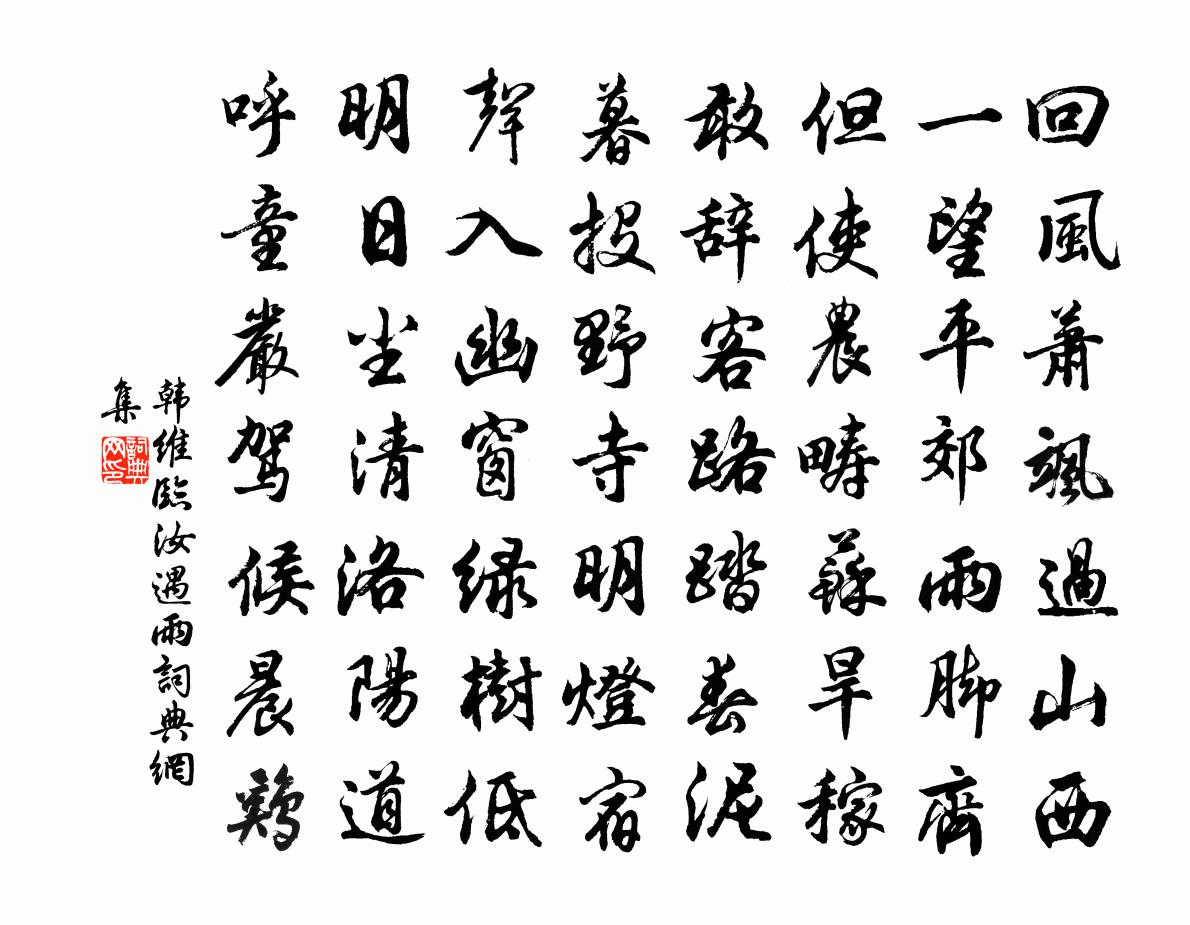 回風蕭颯過山西
一望平郊雨脚齊
但使農疇蘇旱稼
敢辞客路踏春泥
暮投野寺明燈宿
聲入幽窗緑樹低
明日尘清洛陽道
呼童嚴駕候晨鷄
韩維臨汝遇雨詞典網
集
詞典
网印